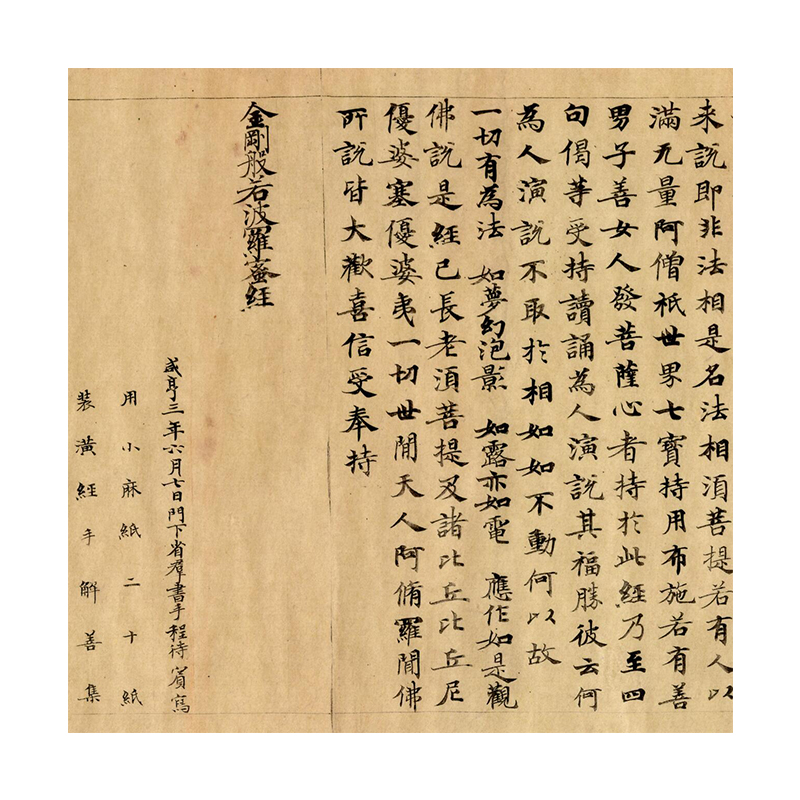 来說即非法相是名法相須菩提若有人以
滿无量阿僧祇世界七寶持用布施若有善
男子善女人發菩薩心者持於此經乃至四
句偈等受持讀誦為人演說其福勝彼云何
為人演說不取於相如如不動何以故
一切有為法 如夢幻泡影 如露亦如電 應作如是觀
佛說是經已長老須菩提及諸比丘比丘尼
優婆塞優婆夷一切世閒天人阿脩羅聞佛
所說皆大歡喜信受奉持
金剛般若波羅蜜經
咸亨三年六月七日門下省群書手程待賓寫
用小麻紙二十紙
裝潢經手解善集